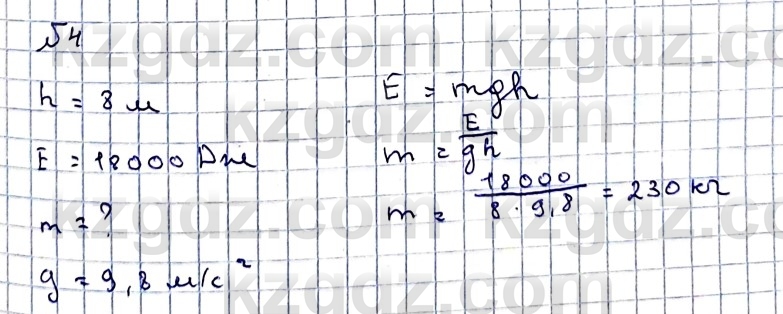 №4
h = 8 м
E = 18000 Дж
m = ?
g = 9,8 м/с²
E = mgh
m = E/gh
m = 18000/8·9,8 = 230 кг
kzgdz.com